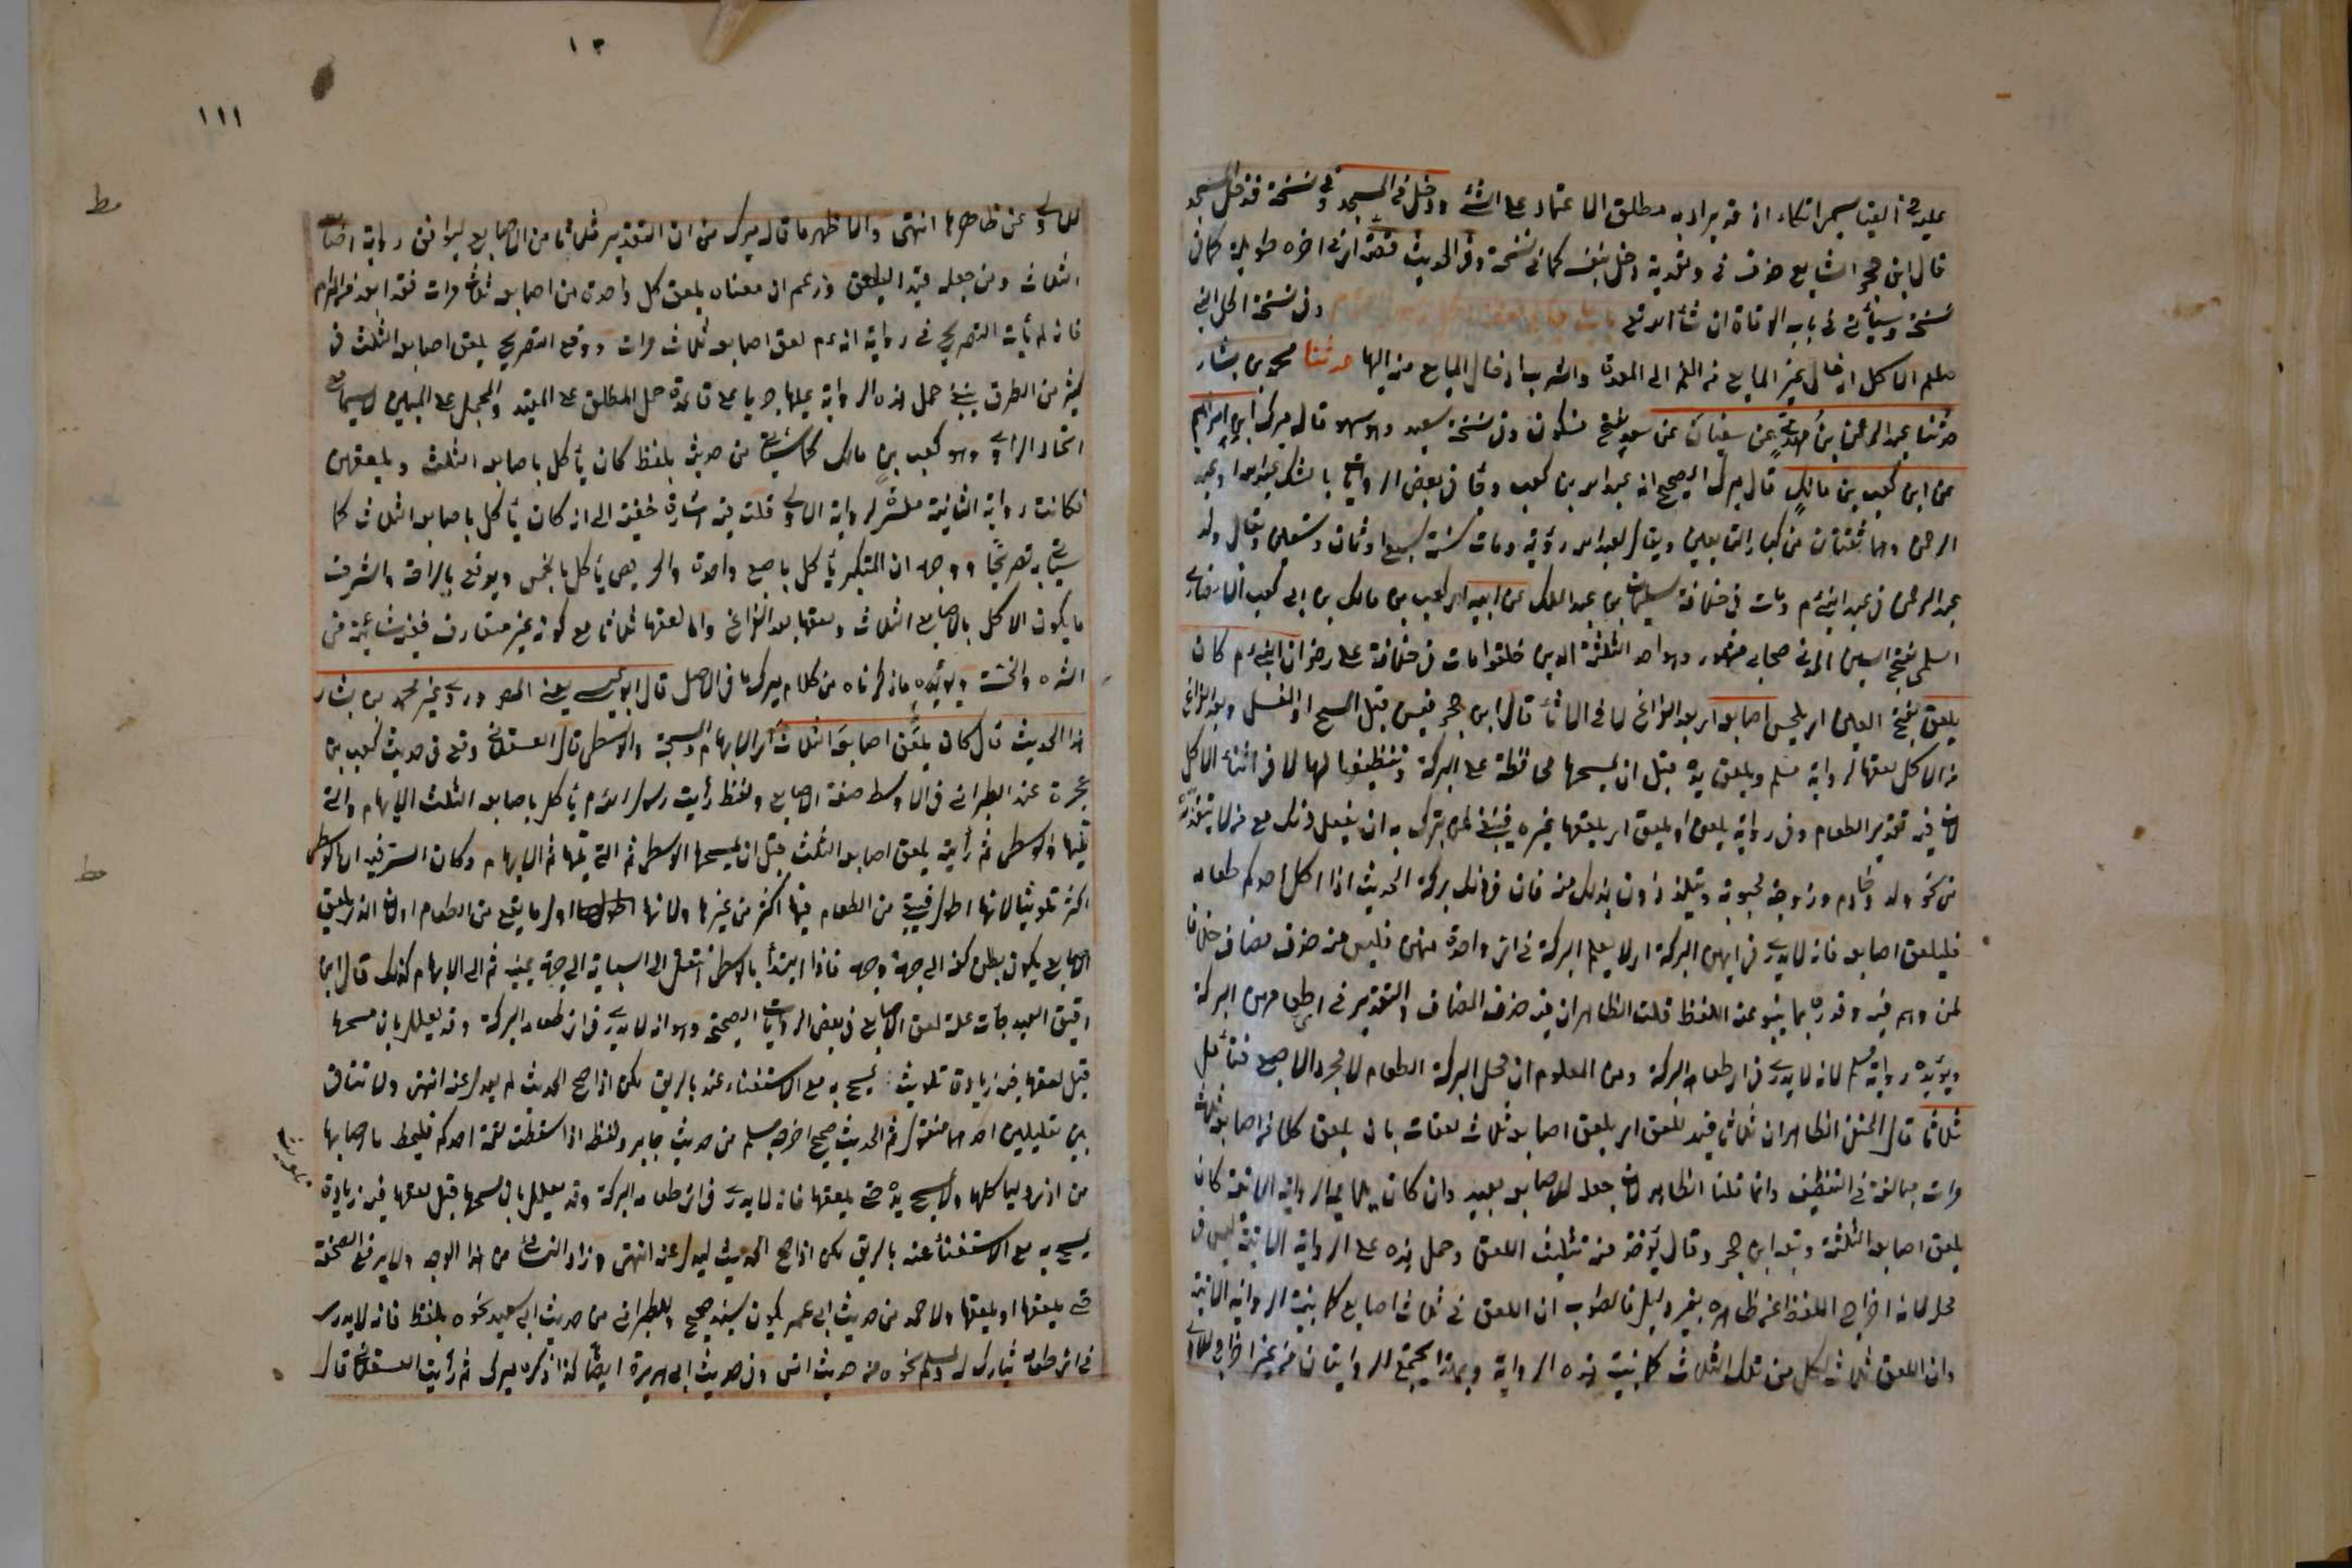 عليه في القياس سمي اتكاء اذ قد يراد به مطلق الاعتماد على الشئ ودخل في المسجد وفي نسخة فدخل المسجد
قال ابن حجر الشايع حذف في وتعدية دخل بنفسه كما في نسخة وفي الحديث قصة اي في اخره طويلة كما في
نسخة وسيأتي في باب الوفاة ان شاء الله تعالى باب وفي نسخة الحل اي
الاكل ادخال غير المايع من الفم الى المعدة والشرب ادخال المايع منه اليها حدثنا محمد بن بشار
حدثنا عبد الرحمن بن مهدي عن سفيان عن سعد بفتح فسكون وفي نسخة سعيد وهو سهو قال ميرك ابن ابراهيم
عن ابن كعب بن مالك قال ميرك الصحيح انه عبد الله بن كعب وقع في بعض الروايات بالشك عبد الله او عبد
الرحمن وهما ثقتان من كبار التابعين ويقال لعبد الله رؤية ومات سنة سبع او ثمان وتسعين ويقال ولد
عبد الرحمن في عهد النبي عم ومات في خلافة سليمان بن عبد الملك عن ابيه اي كعب بن مالك بن ابي كعب الانصاري
السلمي بفتح السين المدني صحابي مشهور وهو احد الثلثة الذين خلفوا مات في خلافة علي رض ان النبي عم كان
يلعق بفتح العين اي يلحس اصابعه اي بعد الفراغ لا في الاثناء قال ابن حجر فيسن قبل المسح او الغسل وبعد الفراغ
من الاكل لعقها لرواية مسلم ويلعق يده قبل ان يمسحها محافظة على البركة وتنظيفا لها لا في اثناء الاكل
لان فيه تقذير الطعام وفي رواية يلعق او يلعق اي يلعقها غيره فينبغي لمن يتبرك به ان يفعل ذلك مع من لا يتقذره
من نحو ولد وخادم وزوجة يحبونه ويتلذذون بذلك منه فان في ذلك بركة الحديث اذا اكل احدكم طعامه
فليلعق اصابعه فانه لا يدري في ايهن البركة اي لا يعلم البركة في اي واحدة منهن فليس منه حذف مضاف خلافا
لمن وهم فيه وقدره بما ينبو عنه اللفظ قلت الظاهر ان فيه حذف المضاف والتقدير في اي طعامهن البركة
ويؤيده رواية مسلم فانه لا يدري في اي طعامه البركة ومن المعلوم ان محل البركة الطعام لا مجرد الاصبع فتأمل
ثلاثا قال الحنفي الظاهر ان ثلاثا قيد للعق اي يلعق اصابعه ثلاث لعقات بان يلعق كلا من اصابعه ثلاث
مرات مبالغة في التنظيف وانما قلنا الظاهر لان جعله للاصابع بعيد وان كان يلائمه الرواية الاتية كان
يلعق اصابعه الثلثة وتبعه ابن حجر وقال يؤخذ منه تثليث اللعق وحمل هذه على الرواية الاتية ليس في
محله لانه اخراج اللفظ عن ظاهره بغير دليل فالصواب ان اللعق في ثلاث اصابع كما بينته الرواية الاتية
وان اللعق ثلاث لكل من تلك الثلاث كما بينت هذه الرواية وبهذا يجتمع الروايتان من غير اخراج للاولى
١٣
١١١
عن ظاهرها انتهى والاظهر ما قال ميرك من ان التقدير ثلاثا من الاصابع ليوافق رواية اصابعه
الثلاث ومن جعله قيدا ليلعق وزعم ان معناه يلعق كل واحدة من اصابعه ثلاث مرات فقد ابعد المرام
فانه لم يأت التصريح في رواية انه عم لعق اصابعه ثلاث مرات ووقع التصريح يلعق اصابعه الثلث في
كثير من الطرق ينبغي حمل هذه الرواية عليها جريا على قاعدة حمل المطلق على المقيد والمجمل على المبين لاسيما مع
اتحاد الراوي وهو كعب بن مالك كما سيأتي من حديث بلفظ كان يأكل باصابعه الثلث ويلعقهن
فكانت رواية الثانية مفسرة لرواية الاولى قلت فيه اشارة خفية الى انه كان يأكل باصابعه الثلاث كما
سيأتي به تصريحا ووجهه ان المتكبر يأكل باصبع واحدة والحريص يأكل بالخمس ويدفع بالراحة واشرف
ما يكون الاكل بالاصابع الثلاث ولعقها بعد الفراغ واما لعقها ثلاثا مع كونه غير متعارف ففيه شائبة من
الشره والخسة ويؤيده ما ذكرناه من كلام ميرك ما في الاصل قال ابو عيسى يعني المص وروى غير محمد بن بشار
هذا الحديث قال كان يلعق اصابعه الثلاث اي الابهام والمسبحة والوسطى قال العسقلاني وقع في حديث كعب بن
عجرة عند الطبراني في الاوسط صفة الاصابع ولفظ رأيت رسول الله عم يأكل باصابعه الثلث الابهام والتي
تليها والوسطى ثم رأيته يلعق اصابعه الثلث قبل ان يمسحها الوسطى ثم التي تليها ثم الابهام وكان السر فيه ان الوسطى
اكثر تلويثا لانها اطول فيبقى من الطعام فيها اكثر من غيرها ولانها لطولها اول ما يقع من الطعام او لان الذي يلعق
الاصابع يكون بطن كفه الى جهة وجهه فاذا ابتدأ بالوسطى انتقل الى السبابة الى جهة يمينه ثم الى الابهام كذلك قال ابن
دقيق العيد جاءت علة لعق الاصابع في بعض الروايات الصحيحة وهو انه لا يدري في اي طعامه البركة وقد يعلل بان مسحها
قبل لعقها فيه زيادة تلويث يمسح به مع الاستغناء عنه بالريق لكن اذا صح الحديث لم يعدل عنه انتهى ولا تنافي
بين تعليلين احدهما منقول ثم الحديث صحيح اخرجه مسلم من حديث جابر ولفظه اذا سقطت لقمة احدكم فليمط ما اصابها
من اذى وليأكلها ولا يمسح يده حتى يلعقها فانه لا يدري في اي طعامه البركة وقد يعلل بان مسحها قبل لعقها فيه زيادة
يمسح به مع الاستغناء عنه بالريق لكن اذا صح الحديث ليعدل عنه انتهى وزاد النسائي من هذا الوجه ولا يرفع الصحفة
حتى يلعقها او يلعقها ولاحمد من حديث ابن عمر يكون بسند صحيح وللطبراني من حديث ابي سعيد نحوه بلفظ فانه لا يدري
في اي طعامه يبارك له ولمسلم نحوه من حديث انس وفي حديث ابي هريرة ايضا كذا ذكره ميرك ثم رأيت العسقلاني قال